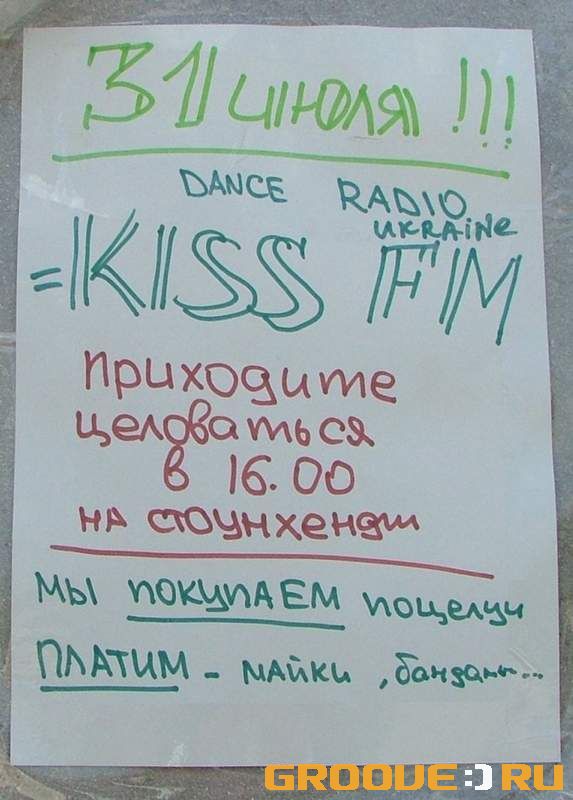 31 июля !!!
DANCE RADIO
UKRAINE
=KISS FM
приходите
целоваться
в 16.00
на стоунхендж
мы ПОКУПАЕМ поцелуи
ПЛАТИМ - майки, банданы...
GROOVE:)RU